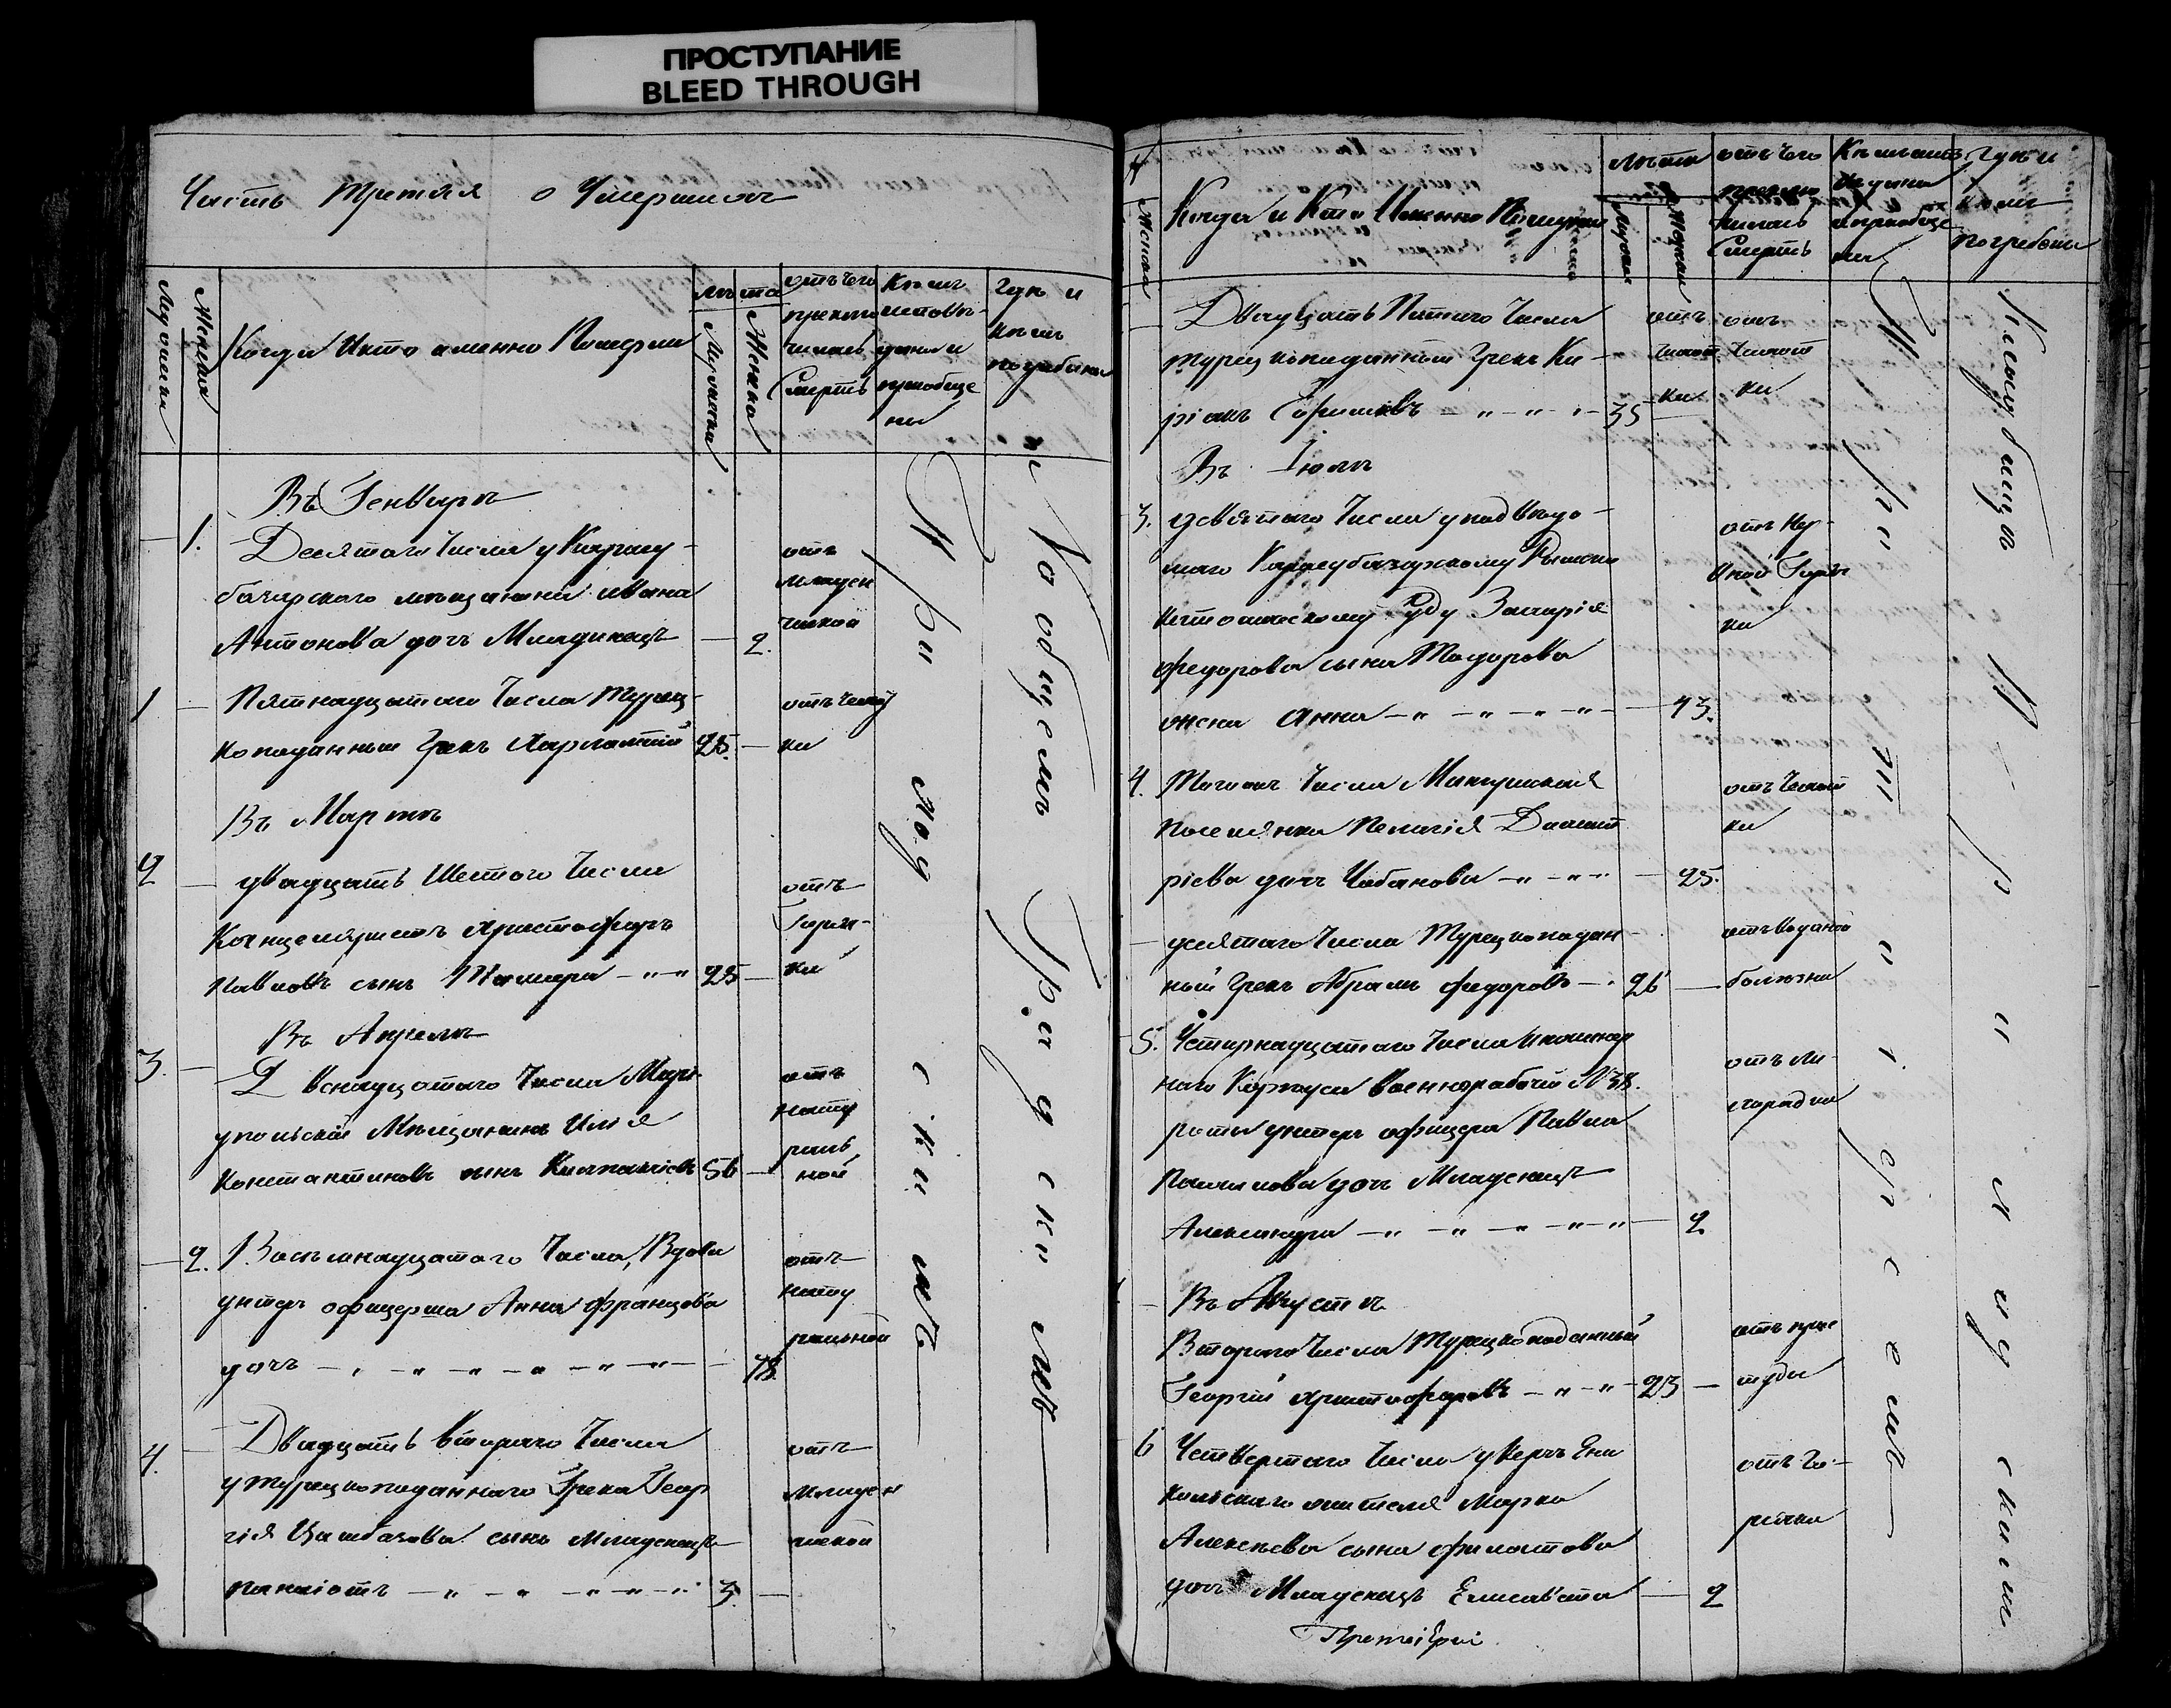 ПРОСТУПАНИЕ
BLEED THROUGH
Часть Третяя о Умершихъ
Мужеска
Женска
Когда и кто именно Померли
Лѣта
Мужеска
Женска
отъ чего
приклю
чилась
Смерть
Кѣмъ
исповѣ-
даны и
приобще
ны
Гдѣ и
кѣмъ
погребены
Въ Генварѣ
1. Десятого Числа у Карасу-
базарского мѣщанина ивана
Антонова дочъ Младенецъ — 2.
отъ
младен
ческой
1 — Пятнадцатаго Числа Турец-
коподанный Грекъ Харлампий 25. —
отъ Чахот
ки
Въ Мартѣ
2 — двадцать Шестого Числа
Канцеляристъ Христофоръ
Павловъ сынъ 25 —
отъ
Горяч-
ки
Въ Апрелѣ
3. — Двенадцатого Числа Мари-
упольскій Мѣщанинъ Илья
Константиновъ сынъ 56 —
отъ
нату
раль
ной
— 2. Восѣмнадцатого Числа, Вдова
унтеръ офицерша Анна францова
дочъ — 78.
отъ
нату
ральной
4. — Двадцать втораго Числа
у турецкоподаннаго Грека Геор
гія сынъ Младенецъ
панаіотъ — 3. —
отъ
Младен
ческой
При
ски мъ
На общемъ Градскимъ
Женска
Когда и Кто Именно Померли
Лѣта
Мужска
Женска
отъ чего
приклю
чилась
Смерть
Кѣмъ исповѣ
даны
и приобще
ны
Гдѣ и
кѣмъ
погребены
— Двадцать Пятаго Числа
турецкоподанный Грекъ Ки-
ріакъ — 35 —
отъ
Чахот
ки
отъ
Чахот
ки
Въ Іюлѣ
3. девятаго Числа у подвѣдо-
маго Карасубазарскому Римско
католическому Суду Захарія
федорова сына Тодорова
жена анна — 43.
отъ Нер-
вной Горяч
ки
4. Тогожъ Числа
поселянка Пелагія Дмит
ріева дочъ Чабанова — 25.
отъ Чахот
ки
— десятаго Числа Турецкоподан-
ный Грекъ Абрамъ федоровъ — 26 —
отъ водяной
болезни
5. Четырнадцатаго Числа инженер
наго Корпуса военнорабочей №38.
роты унтеръ офицера Павла
дочъ Младенецъ
Александра — 2
отъ ли-
хорадки
Въ Августѣ
— Втораго Числа Турецкоподанный
Георгий Христофоровъ — 23 —
отъ прос
туды
6 Четвертаго Числа у Керчь Ени
кольскаго жителя Марка
Алексѣева сына филатова
дочъ Младенецъ Елисавета — 2
отъ Го-
рячки
Протоіерей
Кладбищѣ